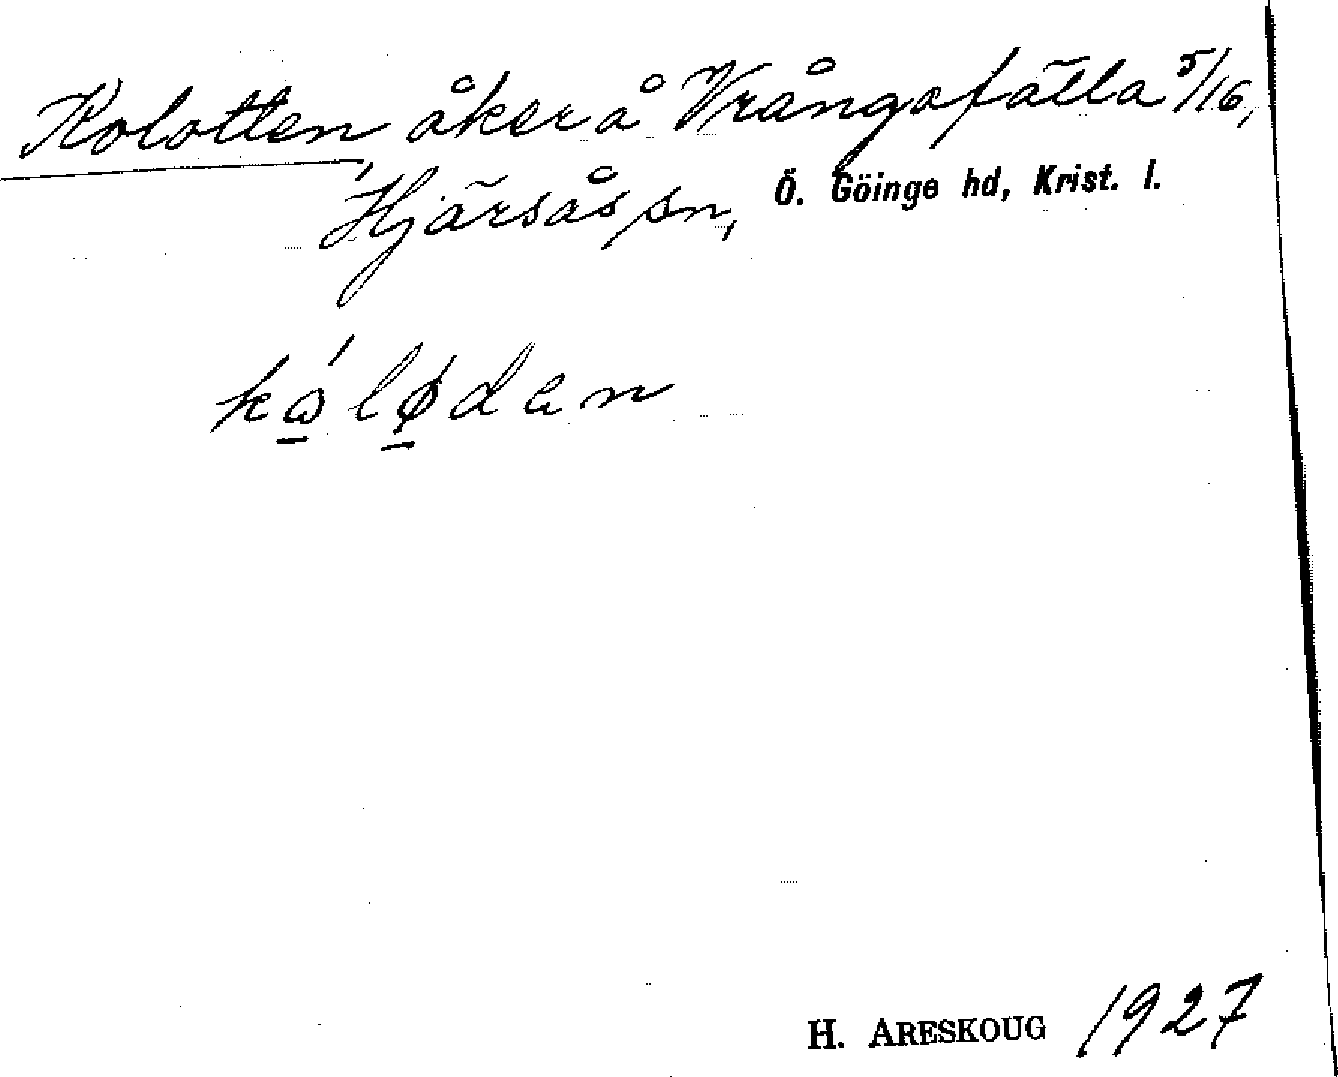 Kolotten, åker å Vrångafälla 5/16,
Hjärsås sn, Ö. Göinge hd, Krist. l.
H. ARESKOUG 1927